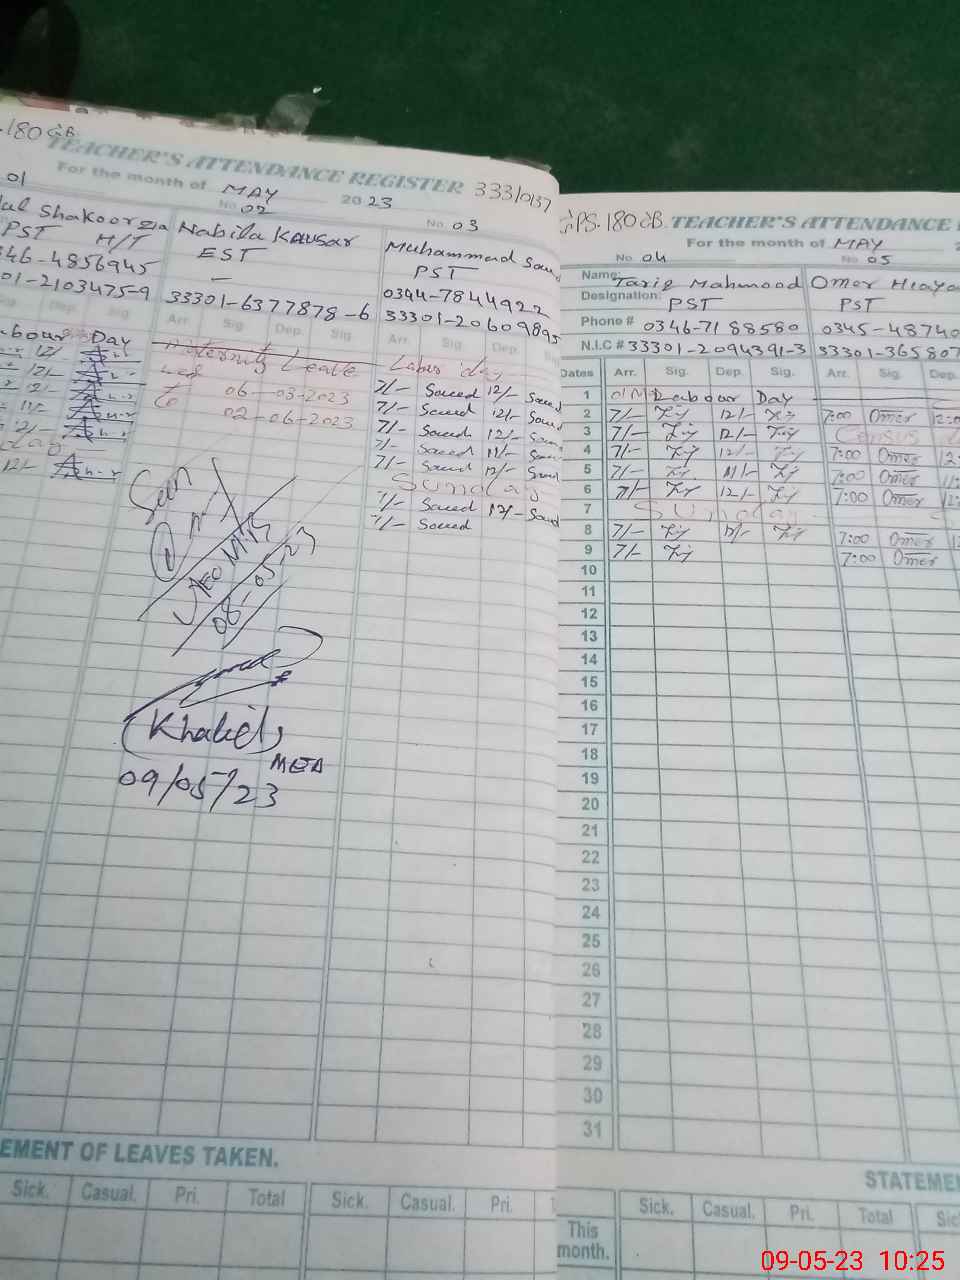 180 GB
TEACHER'S ATTENDANCE REGISTER 33310137
For the month of MAY 2023
01
No 02
No. 03
Shakoor Zia
PST H/T
346-4856945
01-2103475-9
Nabila Kausar
EST
-
33301-6377878-6
Muhammad Saee
PST
0344-7844922
33301-20609895
Dep. Sig. Arr. Sig. Dep. Sig. Arr. Sig. Dep.
bour Day
12/-
12/-
12/-
11/-
12/-
12/-
Maternity Leave
06-03-2023
to 02-06-2023
Labour day
7/- Saeed 12/- Saeed
7/- Saeed 12/- Saeed
7/- Saeed 12/- Saee
7/- Saeed 11/- Saee
7/- Saeed 12/- Saeed
Sunday
7/- Saeed 12/- Saeed
7/- Saeed
Seen
AEO
08-05-23
(Khalid)
MEA
09/05/23
EMENT OF LEAVES TAKEN.
Sick. Casual. Pri. Total Sick. Casual. Pri.
GPS. 180 GB TEACHER'S ATTENDANCE
For the month of MAY
No 04
No. 05
Name: Tariq Mahmood
Designation: PST
Phone # 0346-7188580
N.I.C # 33301-2094391-3
Omer Haya
PST
0345-48740
33301-365807
Dates Arr. Sig. Dep. Sig. Arr. Sig. Dep.
1 Labour Day
2 7/- 12/- 7:00 Omer 12:0
3 7/- 12/- Census
4 7/- 12/- 7:00 Omer 12:
5 7/- 11/- 7:00 Omer 11:
6 7/- 12/- 7:00 Omer 12
7 Sunday
8 7/- 12/- 7:00 Omer 12
9 7/- 7:00 Omer
10
11
12
13
14
15
16
17
18
19
20
21
22
23
24
25
26
27
28
29
30
31
STATEME
Sick. Casual. Pri. Total Sic
This
month.
09-05-23 10:25